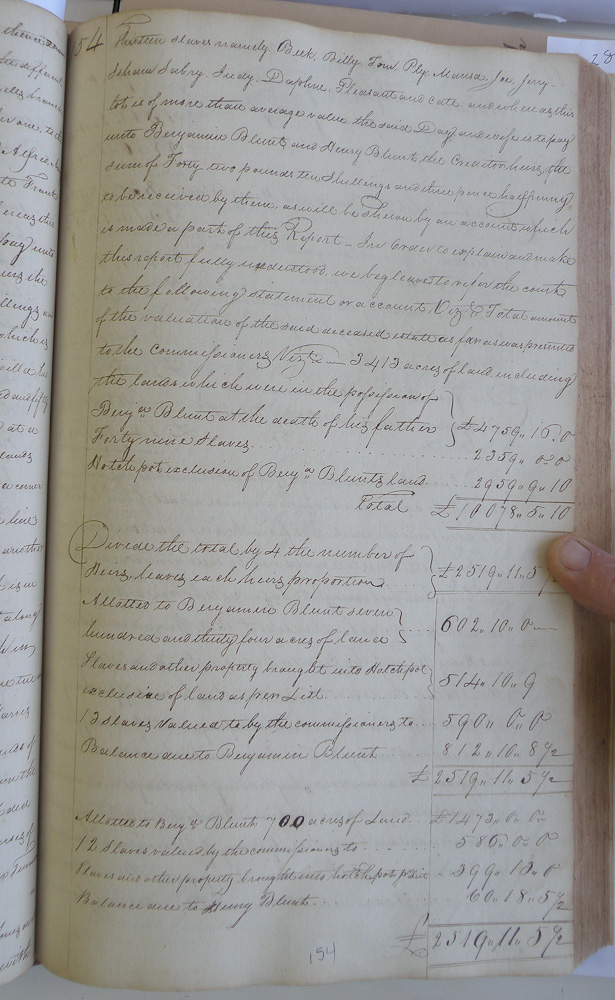 54
Thirteen slaves namely Beck, Billy, Tom, Ply, Mansa, Joe, Jerry
Isham, Sabry, Judy, Daphne, Pleasant and Cate and whereas this
lot is of more than average value the said Day and wife is to pay
unto Benjamin Blunt and Henry Blunt the Creator heirs the
sum of Forty two pounds ten Shillings and three pence halfpenny
to be received by them, as will be Shewn by an account which
is made a part of this Report - In Order to explain and make
this report fully understood, we beg leave to refer the court
to the following statement or account Viz Total amount
of the valuation of the said deceased estate as far as was presented
to the Commissioners Viz 3413 acres of land including
the lands which were in the possession of
Benja Blunt at the death of his father £4759,, 16,, 0
Forty nine Slaves. 2359,, 0,, 0
Hotchpot exclusion of Benja Blunts land 2959,, 9,, 10
Total £10078,, 5,, 10
Divide the total by 4 the number of
Heirs, leaves each heirs proportion £2519,, 11,, 5
Allotted to Benjamin Blunt seven
hundred and thirty four acres of land 602,, 10,, 0
Slaves and other property brought into Hotchpot
exclusive of land as per List 514,, 10,, 9
13 slaves Valued to by the commissioners to 590,, 0,, 0
Balance due to Benjamin Blunt 812,, 10,, 8½
£ 2519,, 11,, 5½
Allotted to Blunt 700 acres of Land £1473,, 0,, 0
12 slaves valued by the commissioners to 586,, 0,, 0
Slaves and other property brought into hotchpot 399,, 13,, 0
Balance due to Henry Blunt 60,, 18,, 5½
£ 2519,, 11,, 5½
154